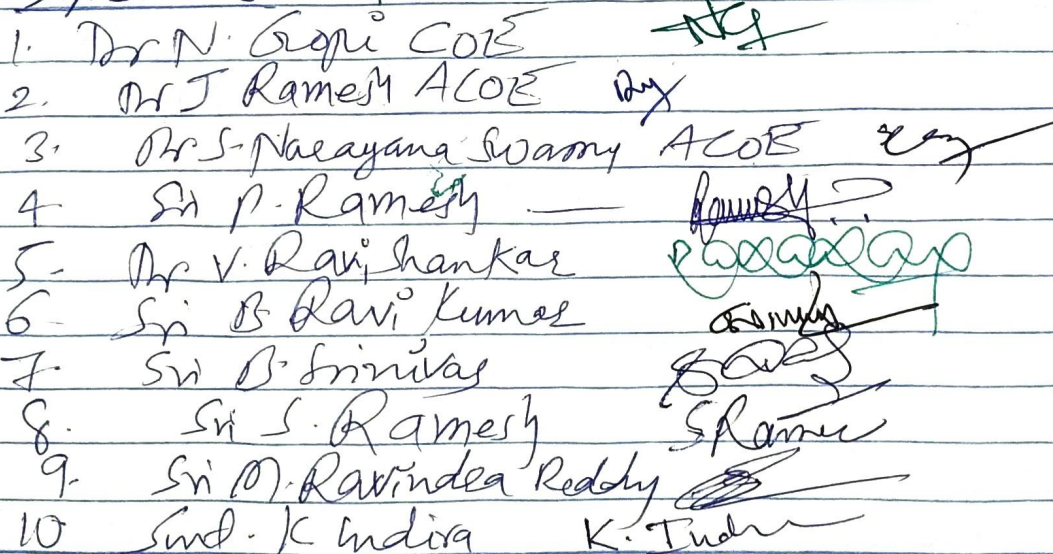 1. Dr N. Gopi COE
2. Dr J Ramesh ACOE
3. Dr S. Narayana Swamy ACOE
4 Sri P. Ramesh — Ramesh
5- Dr V. Ravi Shankar
6- Sri B Ravi Kumar
7- Sri B. Srinivas
8. Sri S. Ramesh S Rame
9. Sri M. Ravindea Reddy
10 Smt. K Indira K. Indi